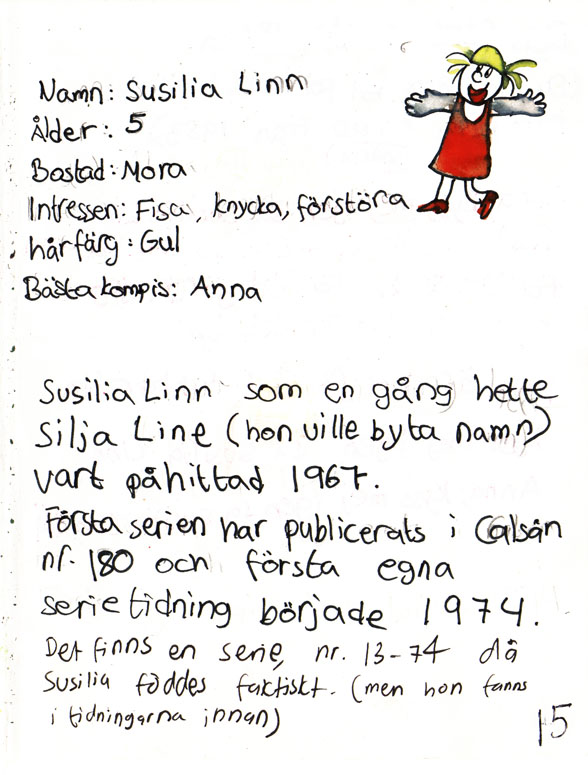 Namn: Susilia Linn
Ålder: 5
Bostad: Mora
Intressen: Fisa, knycka, förstöra
hårfärg: Gul
Bästa kompis: Anna
Susilia Linn som en gång hette
Silja Line (hon ville byta namn)
vart påhittad 1967.
Första serien har publicerats i Galsån
nr. 180 och första egna
serietidning började 1974.
Det finns en serie, nr. 13-74 då
Susilia föddes faktiskt. (men hon fanns
i tidningarna innan)
15